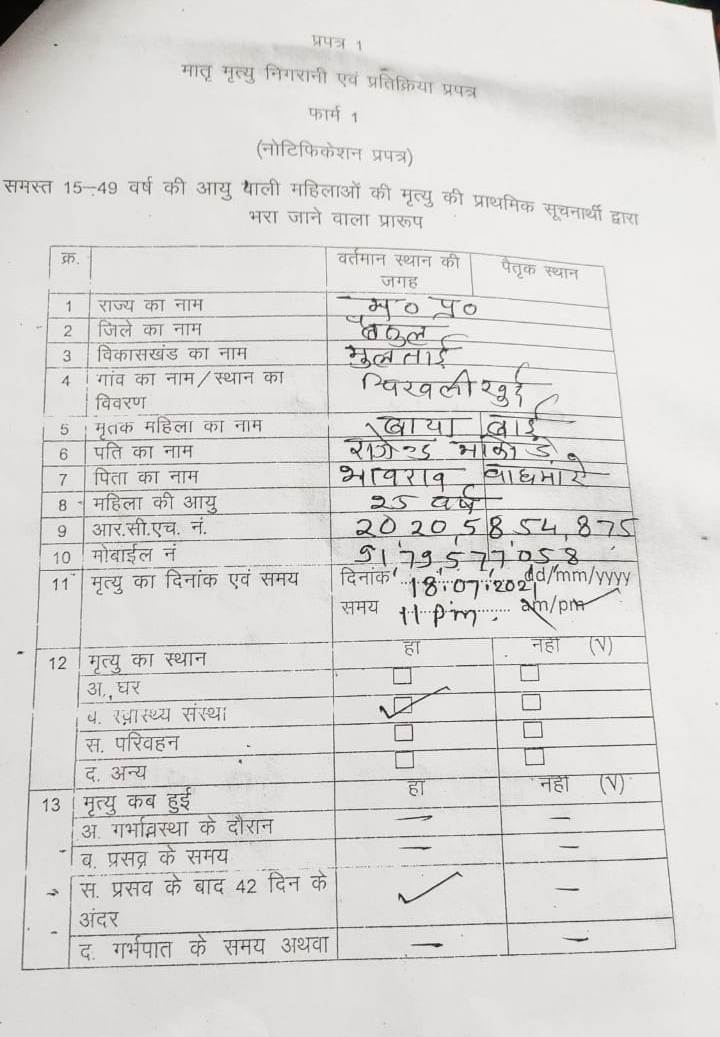 प्रपत्र 1
मातृ मृत्यु निगरानी एवं प्रतिक्रिया प्रपत्र
फार्म 1
(नोटिफिकेशन प्रपत्र)
समस्त 15-49 वर्ष की आयु वाली महिलाओं की मृत्यु की प्राथमिक सूचनार्थी द्वारा
भरा जाने वाला प्रारूप
क्र. वर्तमान स्थान की जगह पैतृक स्थान
1 राज्य का नाम म० प्र०
2 जिले का नाम बैतुल
3 विकासखंड का नाम मुलताई
4 गांव का नाम/स्थान का चिखली खुर्द
विवरण
5 मृतक महिला का नाम बाया बाई
6 पति का नाम
7 पिता का नाम भावराव वाघमारे
8 महिला की आयु 25 वर्ष
9 आर.सी.एच. नं. 20 20 5 8 54 875
10 मोबाईल नं 91 79 5 77 058
11 मृत्यु का दिनांक एवं समय दिनांक 18.07.2021 dd/mm/yyyy
समय 11 pm am/pm
12 मृत्यु का स्थान हा नहा (√)
अ. घर
ब. स्वास्थ्य संस्था ✓
स. परिवहन
द. अन्य
13 मृत्यु कब हुई हा नहा (√)
अ. गर्भावस्था के दौरान — —
ब. प्रसव के समय — —
स. प्रसव के बाद 42 दिन के ✓ —
अंदर
द. गर्भपात के समय अथवा — —